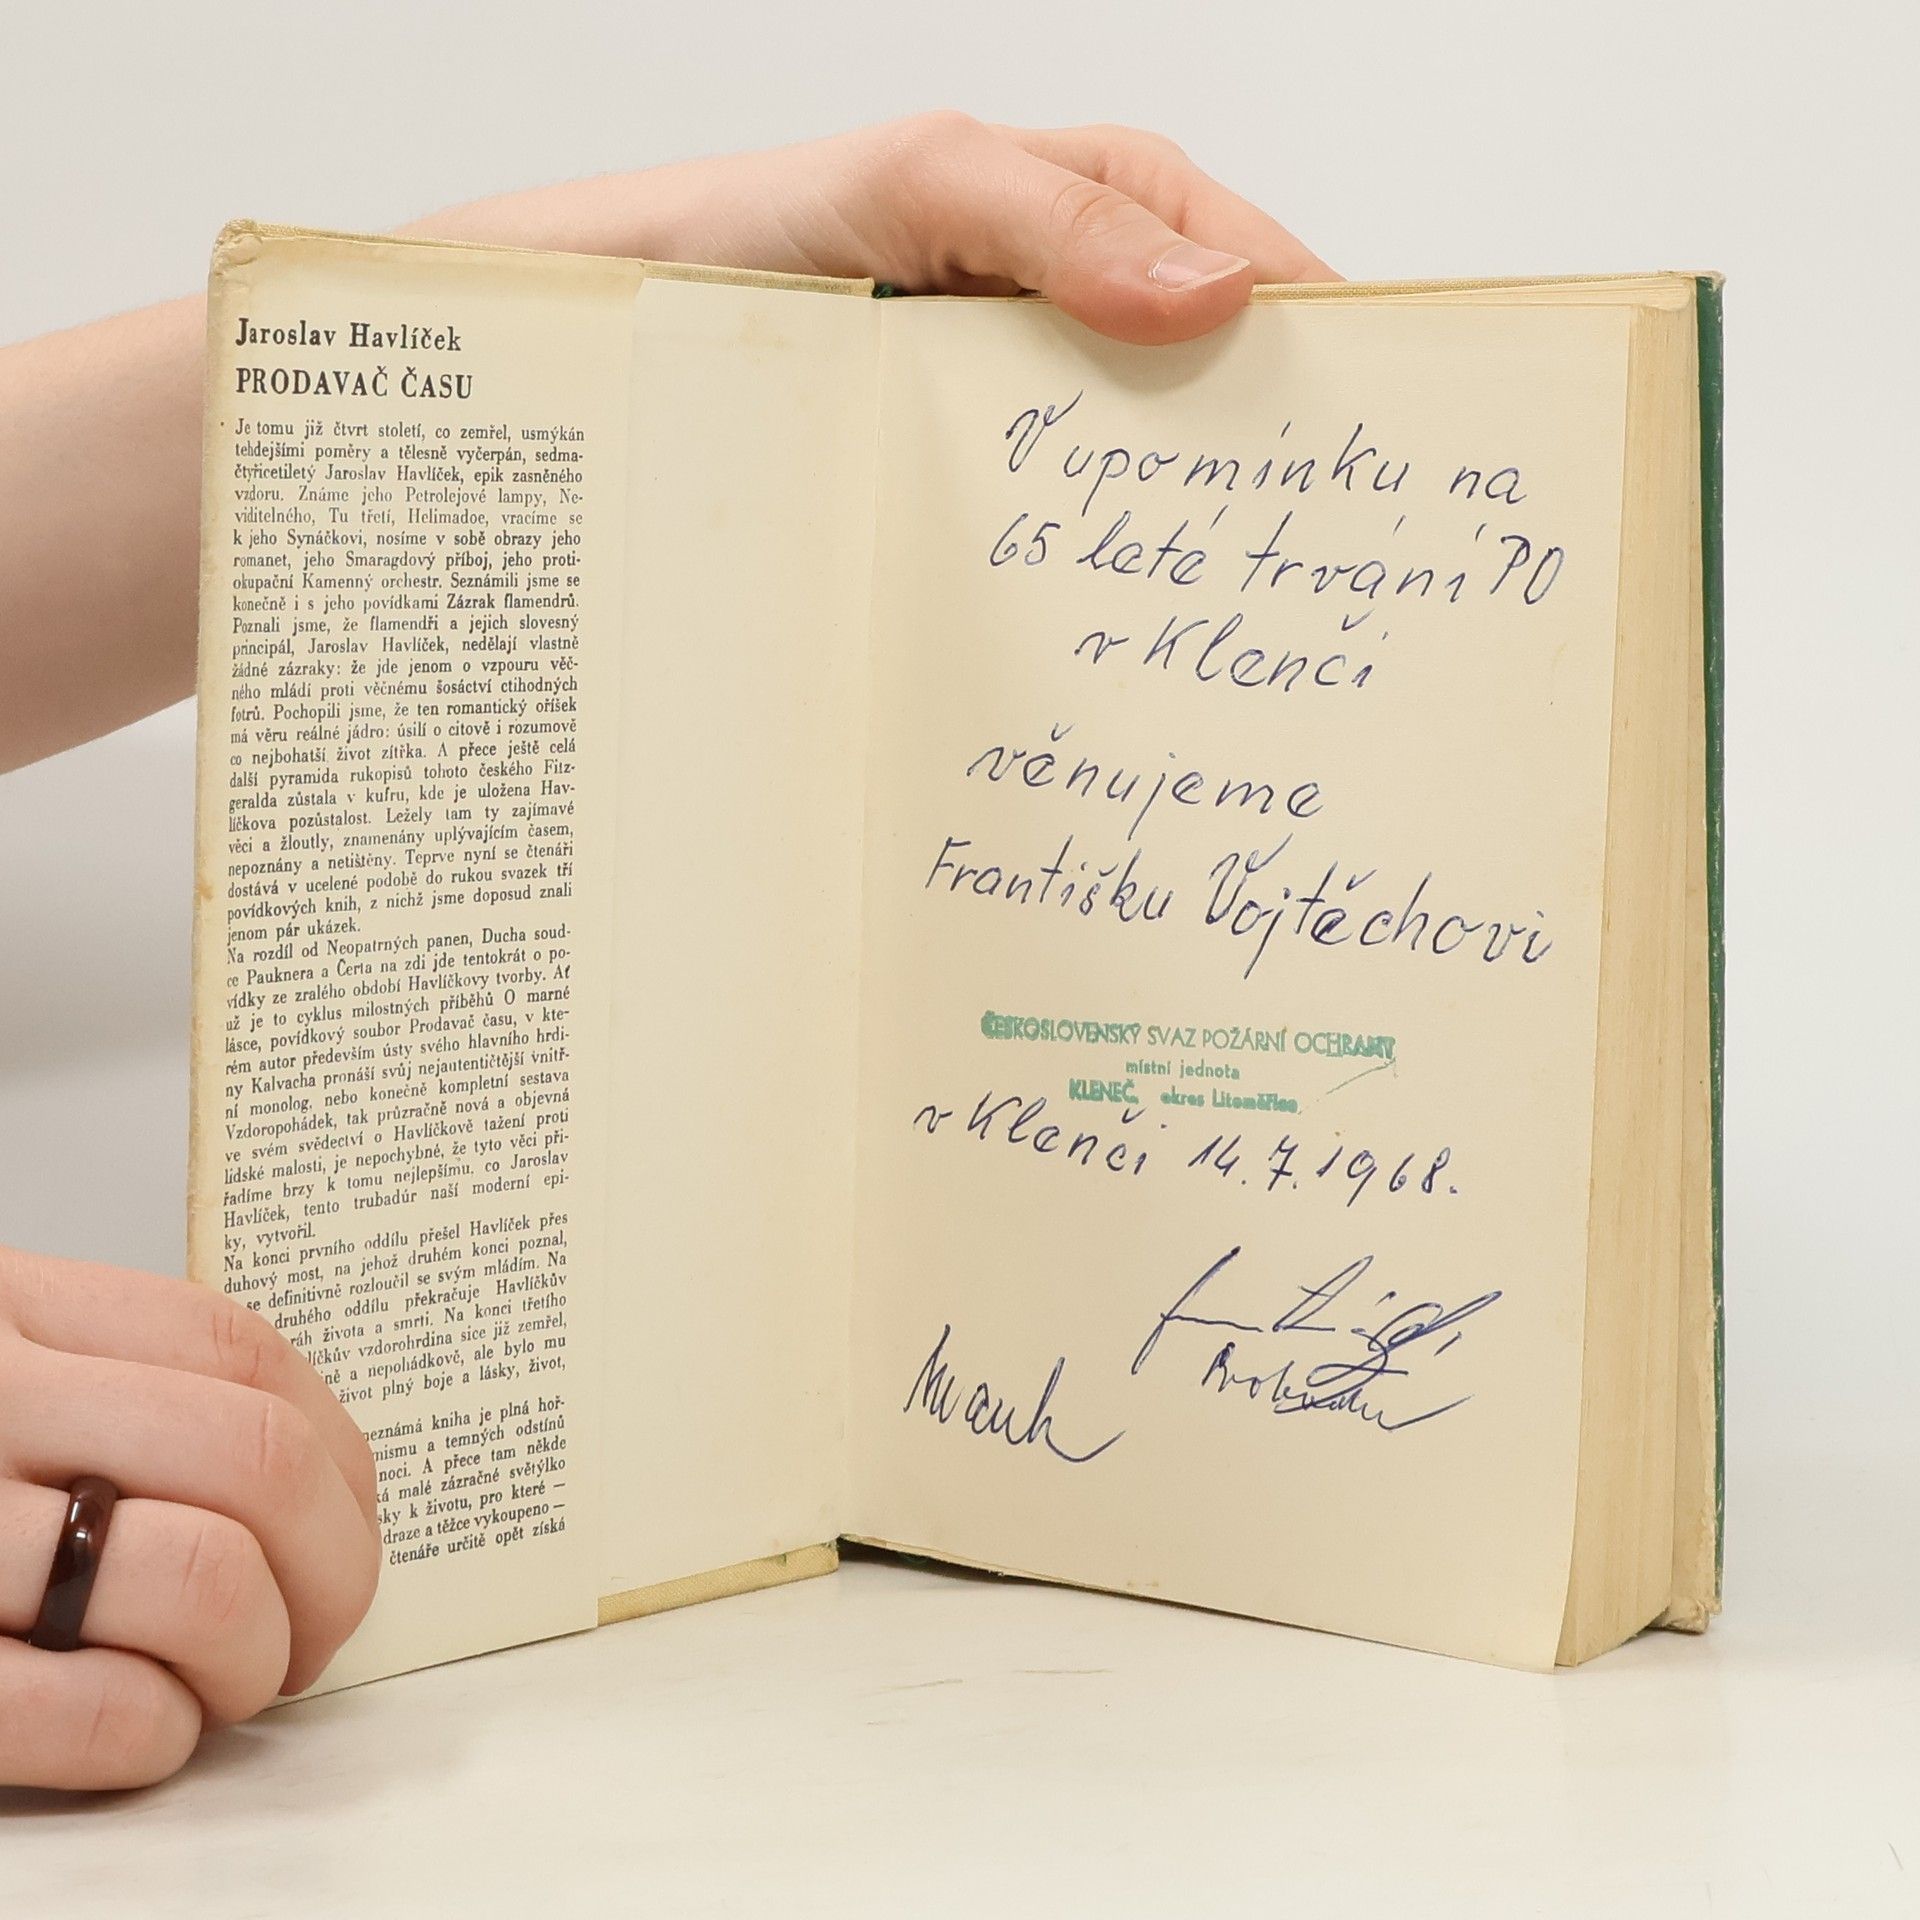 Jaroslav Havlíček
PRODAVAČ ČASU
Je tomu již čtvrt století, co zemřel, usmýkán
tehdejšími poměry a tělesně vyčerpán, sedma-
čtyřicetiletý Jaroslav Havlíček, epik zasněného
vzdoru. Známe jeho Petrolejové lampy, Ne-
viditelného, Tu třetí, Helimadoe, vracíme se
k jeho Synáčkovi, nosíme v sobě obrazy jeho
romanet, jeho Smaragdový příboj, jeho proti-
okupační Kamenný orchestr. Seznámili jsme se
konečně i s jeho povídkami Zázrak flamendrů.
Poznali jsme, že flamendři a jejich slovesný
principál, Jaroslav Havlíček, nedělají vlastně
žádné zázraky: že jde jenom o vzpouru věč-
ného mládí proti věčnému šosáctví ctihodných
fotrů. Pochopili jsme, že ten romantický oříšek
má věru reálné jádro: úsilí o citově i rozumově
co nejbohatší život zítřka. A přece ještě celá
další pyramida rukopisů tohoto českého Fitz-
geralda zůstala v kufru, kde je uložena Hav-
líčkova pozůstalost. Ležely tam ty zajímavé
věci a žloutly, znamenány uplývajícím časem,
nepoznány a netištěny. Teprve nyní se čtenáři
dostává v ucelené podobě do rukou svazek tří
povídkových knih, z nichž jsme doposud znali
jenom pár ukázek.
Na rozdíl od Neopatrných panen, Ducha soud-
ce Pauknera a Čerta na zdi jde tentokrát o po-
vídky ze zralého období Havlíčkovy tvorby. Ať
už je to cyklus milostných příběhů O marné
lásce, povídkový soubor Prodavač času, v kte-
rém autor především ústy svého hlavního hrdi-
ny Kalvacha pronáší svůj nejautentičtější vnitř-
ní monolog, nebo konečně kompletní sestava
Vzdoropohádek, tak průzračně nová a objevná
ve svém svědectví o Havlíčkově tažení proti
lidské malosti, je nepochybné, že tyto věci při-
řadíme brzy k tomu nejlepšímu, co Jaroslav
Havlíček, tento trubadúr naší moderní epi-
ky, vytvořil.
Na konci prvního oddílu přešel Havlíček přes
duhový most, na jehož druhém konci poznal,
se definitivně rozloučil se svým mládím. Na
druhého oddílu překračuje Havlíčkův
ráh života a smrti. Na konci třetího
líčkův vzdorohrdina sice již zemřel,
ině a nepohádkově, ale bylo mu
život plný boje a lásky, život,
neznámá kniha je plná hoř-
nismu a temných odstínů
noci. A přece tam někde
ká malé zázračné světýlko
sky k životu, pro které —
draze a těžce vykoupeno —
čtenáře určitě opět získá
V upomínku na
65 leté trvání PO
v Klenči
věnujeme
Františku Vojtěchovi
ČESKOSLOVENSKÝ SVAZ POŽÁRNÍ OCHRANY
místní jednota
KLENEČ, okres Litoměřice
v Klenči 14.7.1968.